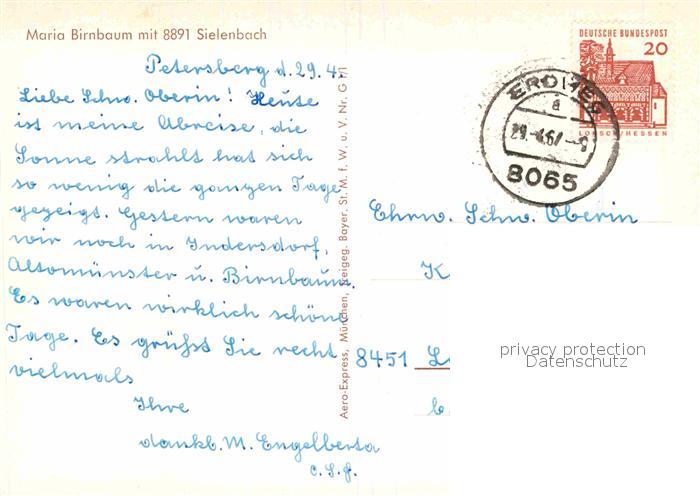 Maria Birnbaum mit 8891 Sielenbach
Petersberg d. 29. 4.
Liebe Schw. Oberin! Heute
ist meine Abreise, die
Sonne strahlt hat sich
so wenig die ganzen Tage
gezeigt. Gestern waren
wir noch in Indersdorf,
Altomünster u. Birnbaum.
Es waren wirklich schöne
Tage. Es grüßt Sie recht
vielmals
Ihre
dankb. M. Engelberta
c.s.f.
Aero-Express, München, Freigeg. Bayer. St. M. f. W. u. V. Nr. G
DEUTSCHE BUNDESPOST
20
LORSCH/HESSEN
a
8065
Ehrw. Schw. Oberin
K
8451
privacy protection
Datenschutz